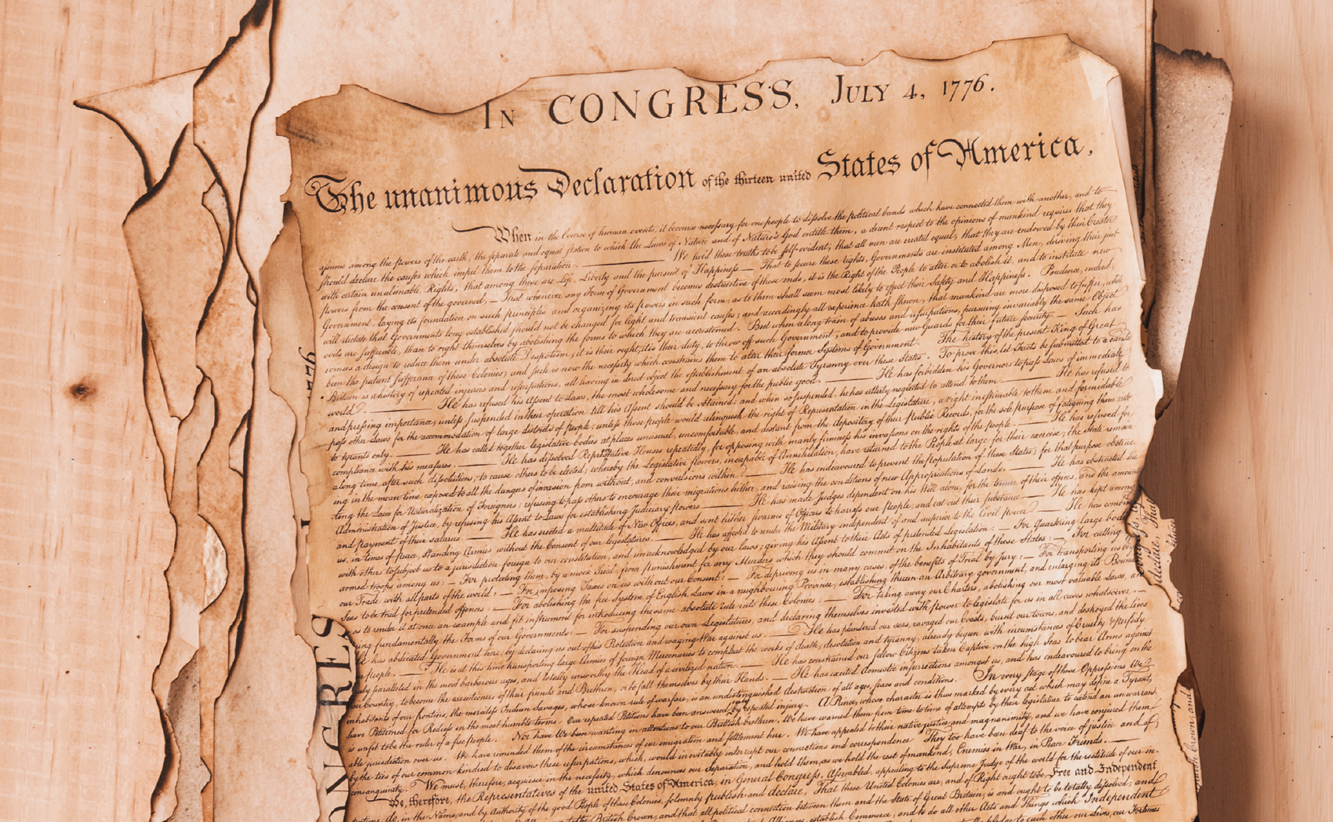 In CONGRESS, July 4, 1776.
The unanimous Declaration of the thirteen united States of America,
When in the Course of human events, it becomes necessary for one people to dissolve the political bands which have connected them with another, and to
assume among the powers of the earth, the separate and equal station to which the Laws of Nature and of Nature's God entitle them, a decent respect to the opinions of mankind requires that they
should declare the causes which impel them to the separation. — We hold these truths to be self-evident, that all men are created equal, that they are endowed by their Creator
with certain unalienable Rights, that among these are Life, Liberty and the pursuit of Happiness — That to secure these rights, Governments are instituted among Men, deriving their just
powers from the consent of the governed, — That whenever any Form of Government becomes destructive of these ends, it is the Right of the People to alter or to abolish it, and to institute new
Government, laying its foundation on such principles and organizing its powers in such form, as to them shall seem most likely to effect their Safety and Happiness. Prudence, indeed,
will dictate that Governments long established should not be changed for light and transient causes; and accordingly all experience hath shewn, that mankind are more disposed to suffer, while
evils are sufferable, than to right themselves by abolishing the forms to which they are accustomed. But when a long train of abuses and usurpations, pursuing invariably the same Object
evinces a design to reduce them under absolute Despotism, it is their right, it is their duty, to throw off such Government, and to provide new Guards for their future security. — Such has
been the patient sufferance of these Colonies; and such is now the necessity which constrains them to alter their former Systems of Government. The history of the present King of Great
Britain is a history of repeated injuries and usurpations, all having in direct object the establishment of an absolute Tyranny over these States. To prove this, let Facts be submitted to a candid
world. — He has refused his Assent to Laws, the most wholesome and necessary for the public good. — He has forbidden his Governors to pass Laws of immediate
and pressing importance, unless suspended in their operation till his Assent should be obtained; and when so suspended, he has utterly neglected to attend to them. — He has refused to
pass other Laws for the accommodation of large districts of people, unless those people would relinquish the right of Representation in the Legislature, a right inestimable to them and formidable
to tyrants only. — He has called together legislative bodies at places unusual, uncomfortable, and distant from the depository of their public Records, for the sole purpose of fatiguing them into
compliance with his measures. — He has dissolved Representative Houses repeatedly, for opposing with manly firmness his invasions on the rights of the people. — He has refused for
along time, after such dissolutions, to cause others to be elected; whereby the Legislative powers, incapable of Annihilation, have returned to the People at large for their exercise; the State remain
ing in the mean time exposed to all the dangers of invasion from without, and convulsions within. — He has endeavoured to prevent the population of these States; for that purpose obstruc
ting the Laws for Naturalization of Foreigners; refusing to pass others to encourage their migrations hither, and raising the conditions of new Appropriations of Lands. — He has obstructed the
Administration of Justice, by refusing his Assent to Laws for establishing Judiciary powers. — He has made Judges dependent on his Will alone, for the tenure of their offices, and the amount
and payment of their salaries. — He has erected a multitude of New Offices, and sent hither swarms of Officers to harass our people, and eat out their substance. — He has kept among
us, in times of peace, Standing Armies without the Consent of our legislatures. — He has affected to render the Military independent of and superior to the Civil power. — He has
with others to subject us to a jurisdiction foreign to our constitution, and unacknowledged by our laws; giving his Assent to their Acts of pretended Legislation: — For Quartering large bodies
armed troops among us: — For protecting them, by a mock Trial, from punishment for any Murders which they should commit on the Inhabitants of these States: — For cutting
our Trade with all parts of the world: — For imposing Taxes on us without our Consent: — For depriving us in many cases, of the benefits of Trial by Jury: — For transporting us
Seas to be tried for pretended offences: — For abolishing the free System of English Laws in a neighbouring Province, establishing therein an Arbitrary government, and enlarging its
as to render it at once an example and fit instrument for introducing the same absolute rule into these Colonies: — For taking away our Charters, abolishing our most valuable Laws, and
ing fundamentally the Forms of our Governments: — For suspending our own Legislatures, and declaring themselves invested with power to legislate for us in all cases whatsoever. —
He has abdicated Government here, by declaring us out of his Protection and waging War against us. — He has plundered our seas, ravaged our Coasts, burnt our towns, and destroyed the lives
people. — He is at this time transporting large Armies of foreign Mercenaries to compleat the works of death, desolation and tyranny, already begun with circumstances of Cruelty & perfidy
paralleled in the most barbarous ages, and totally unworthy the Head of a civilized nation. — He has constrained our fellow Citizens taken Captive on the high Seas to bear Arms against
Country, to become the executioners of their friends and Brethren, or to fall themselves by their Hands. — He has excited domestic insurrections amongst us, and has endeavoured to bring on the
inhabitants of our frontiers, the merciless Indian Savages, whose known rule of warfare, is an undistinguished destruction of all ages, sexes and conditions. In every stage of these Oppressions We
have Petitioned for Redress in the most humble terms: Our repeated Petitions have been answered by repeated injury. A Prince, whose character is thus marked by every act which may define a Tyrant,
is unfit to be the ruler of a free people. Nor have We been wanting in attentions to our British brethren. We have warned them from time to time of attempts by their legislature to extend an unwarrant
able jurisdiction over us. We have reminded them of the circumstances of our emigration and settlement here. We have appealed to their native justice and magnanimity, and we have conjured them
by the ties of our common kindred to disavow these usurpations, which, would inevitably interrupt our connections and correspondence. They too have been deaf to the voice of justice and of
consanguinity. We must, therefore, acquiesce in the necessity, which denounces our Separation, and hold them, as we hold the rest of mankind, Enemies in War, in Peace Friends. —
We, therefore, the Representatives of the united States of America, in General Congress, Assembled, appealing to the Supreme Judge of the world for the rectitude of our in
tentions, do, in the Name, and by authority of the good People of these Colonies, solemnly publish and declare, That these United Colonies are, and of Right ought to be Free and Independent
the British Crown, and that all political connection between them and the State of Great Britain, is and ought to be totally dissolved; and
establish Commerce, and to do all other Acts and Things which Independent
pledge to each other our Lives, our Fortunes
CONGRES
declare That